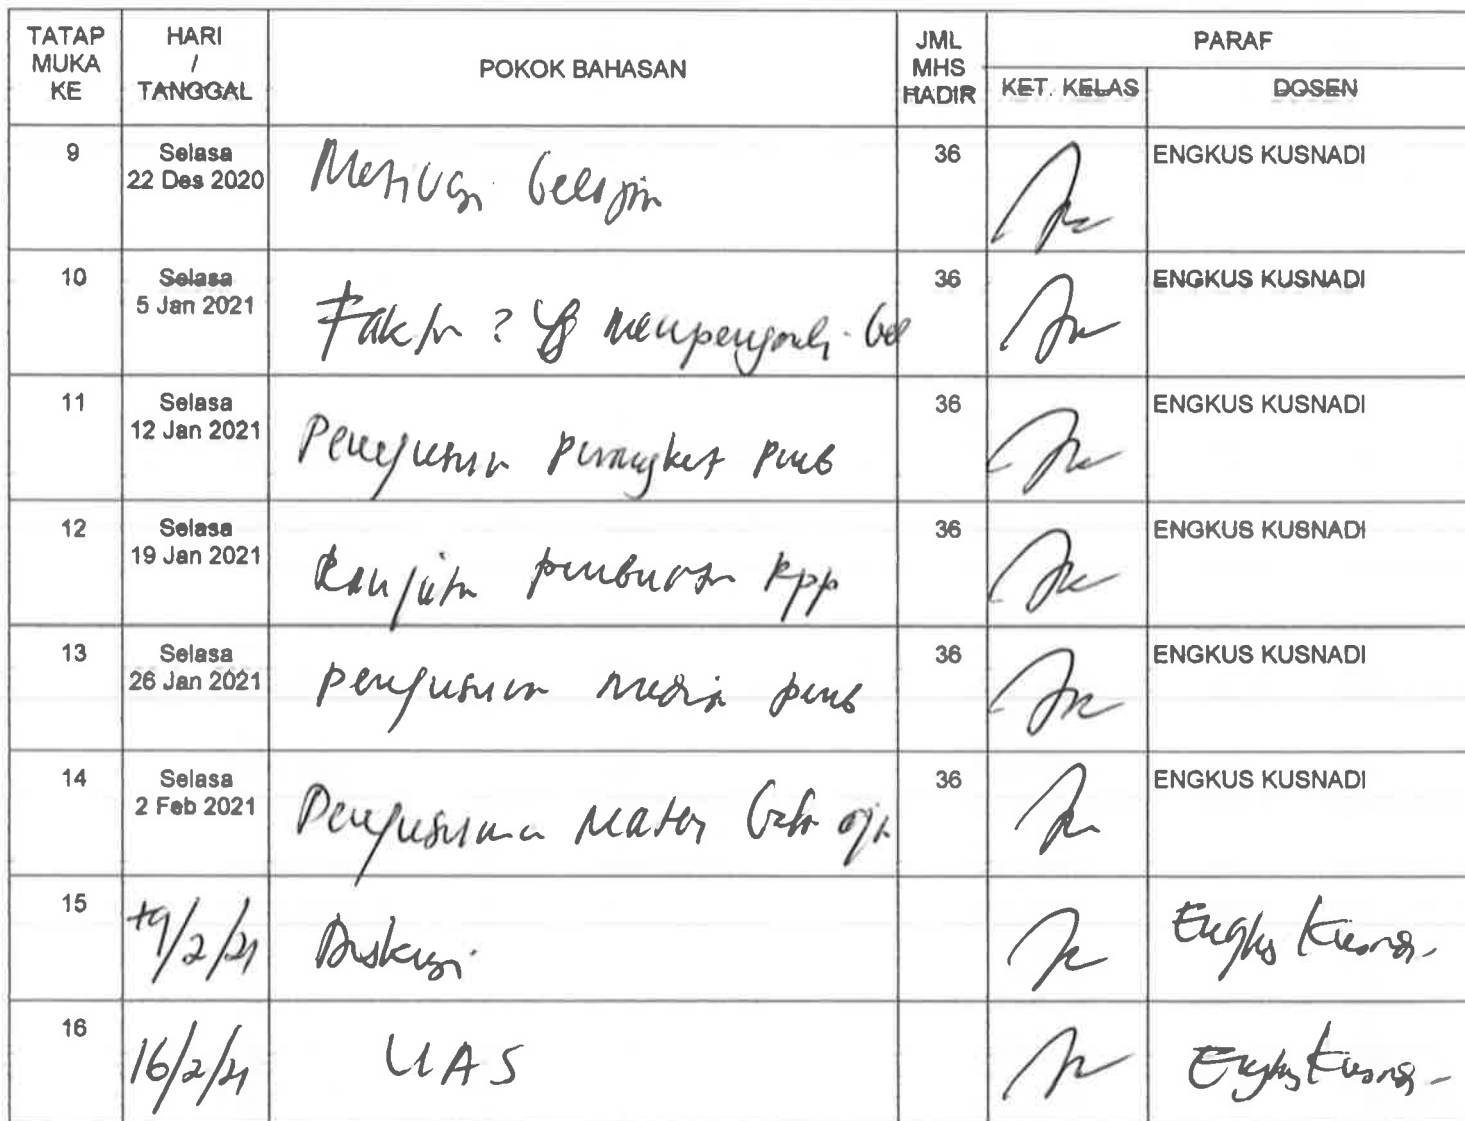 TATAP MUKA KE
HARI / TANGGAL
POKOK BAHASAN
JML MHS HADIR
PARAF
KET. KELAS
DOSEN
9
Selasa
22 Des 2020
Motivasi belajar
36
ENGKUS KUSNADI
10
Selasa
5 Jan 2021
Faktor² yg mempengaruhi bel
36
ENGKUS KUSNADI
11
Selasa
12 Jan 2021
Penyusunan perangket pemb
36
ENGKUS KUSNADI
12
Selasa
19 Jan 2021
Lanjutan pembuatan Rpp
36
ENGKUS KUSNADI
13
Selasa
26 Jan 2021
penyusunan media pemb
36
ENGKUS KUSNADI
14
Selasa
2 Feb 2021
Penyusunan Materi
36
ENGKUS KUSNADI
15
9/2/21
Diskusi
Engkus Kusnadi
16
16/2/21
UAS
Engkus Kusnadi